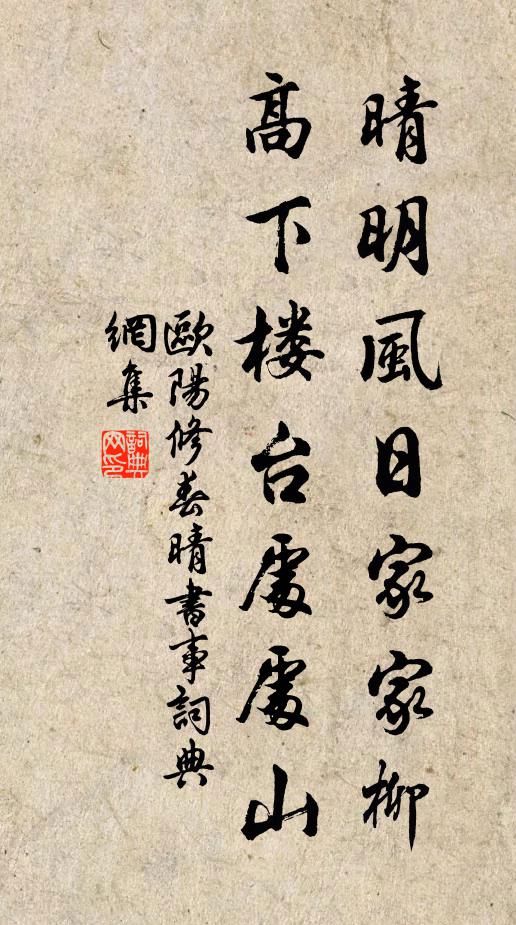 晴明風日家家柳
高下楼台處處山
歐陽修春晴書事詞典
網集
詞典
网印